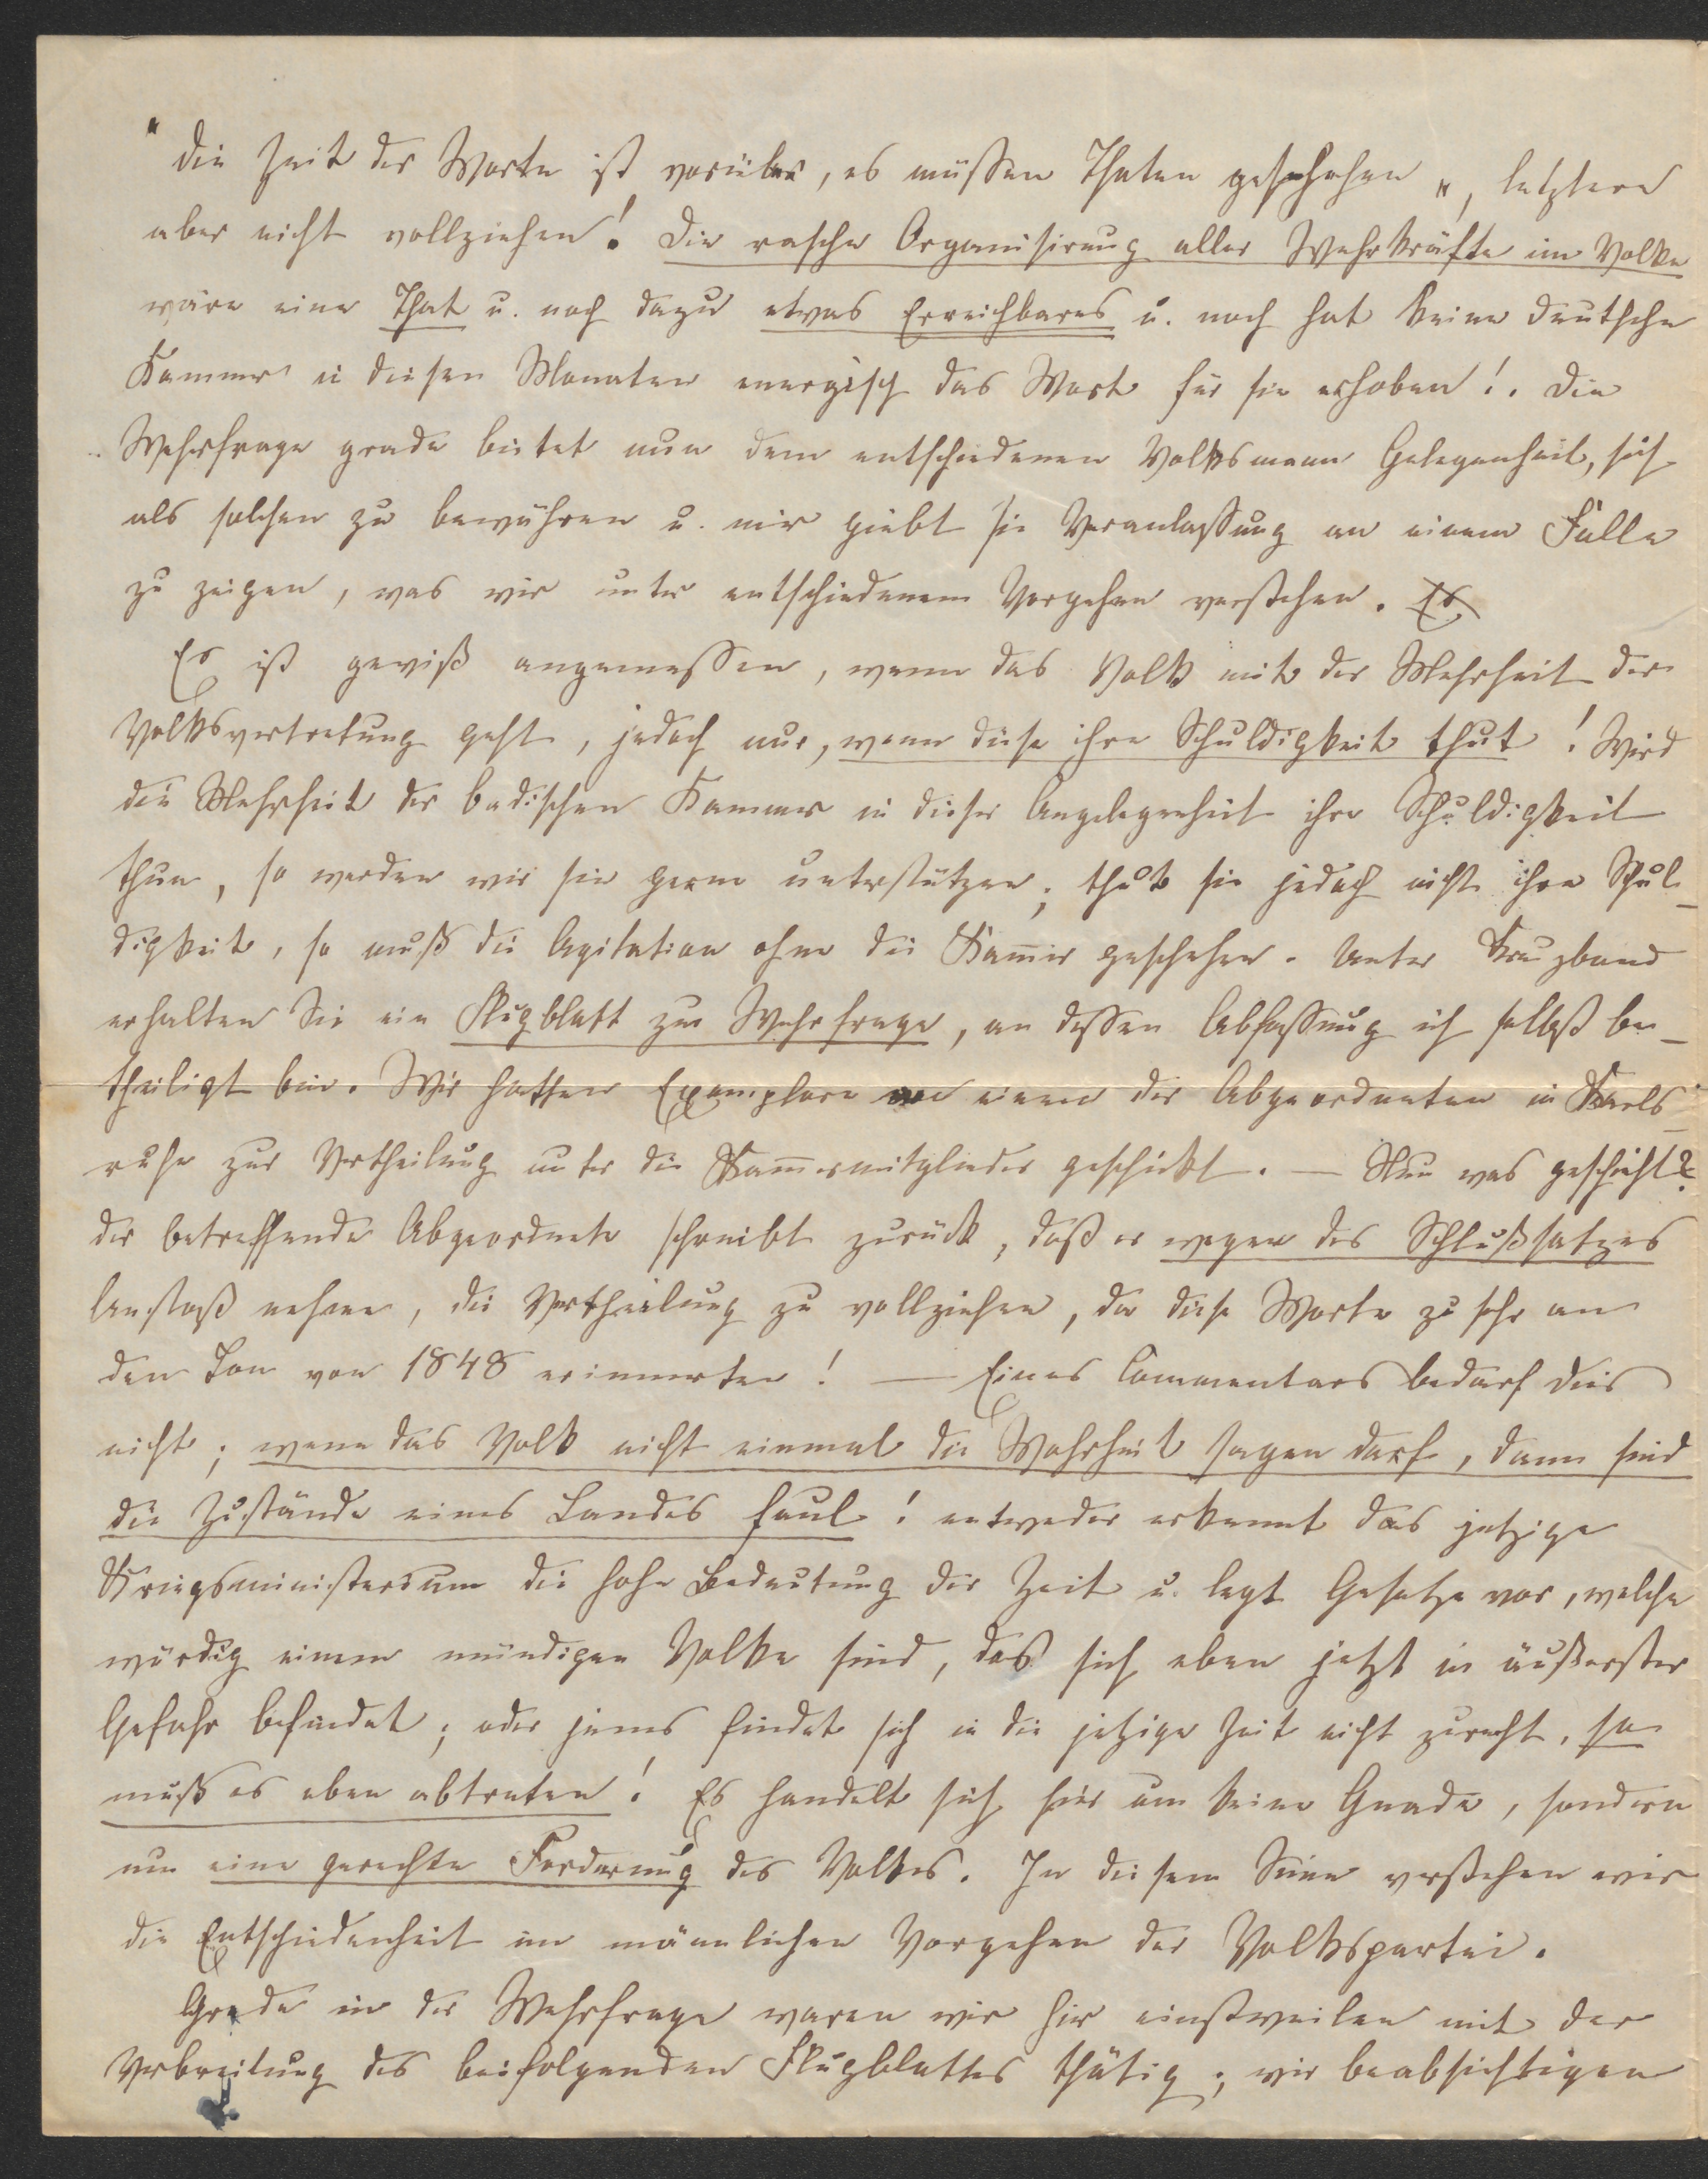 "Die Zeit der Worte ist vorüber, es müssen Thaten geschehen", letztere
aber nicht vollziehen! Die rasche Organisirung aller Wehrkräfte im Volke
wäre eine That u. noch dazu etwas Erreichbares u. noch hat keine deutsche
Kammer in diesen Monaten energisch das Wort für sie erhoben!. Die
Wehrfrage grade bietet nun dem entschiedenen Volksmann Gelegenheit, sich
als solchen zu bewähren u. mir giebt sie Veranlassung an einem Falle
zu zeigen, was wir unter entschiedenem Vorgehen verstehen. Es
Es ist gewiß angemessen, wenn das Volk mit der Mehrheit der
Volksvertretung geht, jedoch nur, wenn diese ihre Schuldigkeit thut! Wird
die Mehrheit der badischen Kammer in dieser Angelegenheit ihre Schuldigkeit
thun, so werden wir sie gerne unterstützen; thut sie jedoch nicht ihre Schul-
digkeit, so muß die Agitation ohne die Kam̄er geschehen. Unter Kreuzband
erhalten Sie ein Flugblatt zur Wehrfrage, an dessen Abfassung ich selbst be-
theiligt bin. Wir hatten Exemplare an einen der Abgeordneten in Karls-
ruhe zur Vertheilung unter die Kam̄ermitglieder geschickt. — Nun was geschieht?
der betreffende Abgeordnete schreibt zurück, daß er wegen des Schlußsatzes
Anstoß nehme, die Vertheilung zu vollziehen, da diese Worte zu sehr an
den Ton von 1848 erinnerten! — Eines Commentars bedarf dies
nicht; wenn das Volk nicht einmal die Wahrheit sagen darf, dann sind
die Zustände eines Landes faul! entweder erkennt das jetzige
Kriegsministerium die hohe Bedeutung der Zeit u. legt Gesetze vor, welche
würdig einem mündigen Volke sind, das sich eben jetzt in äußerster
Gefahr befindet; oder jenes findet sich in die jetzige Zeit nicht zurecht, so
muß es eben abtreten! Es handelt sich hier um keine Gnade, sondern
um eine gerechte Forderung des Volkes. In diesem Sinne verstehen wir
die Entschiedenheit im männlichen Vorgehen der Volkspartei.
Grade in der Wehrfrage waren wir hier einstweilen mit der
Verbreitung des beifolgenden Flugblattes thätig; wir beabsichtigen